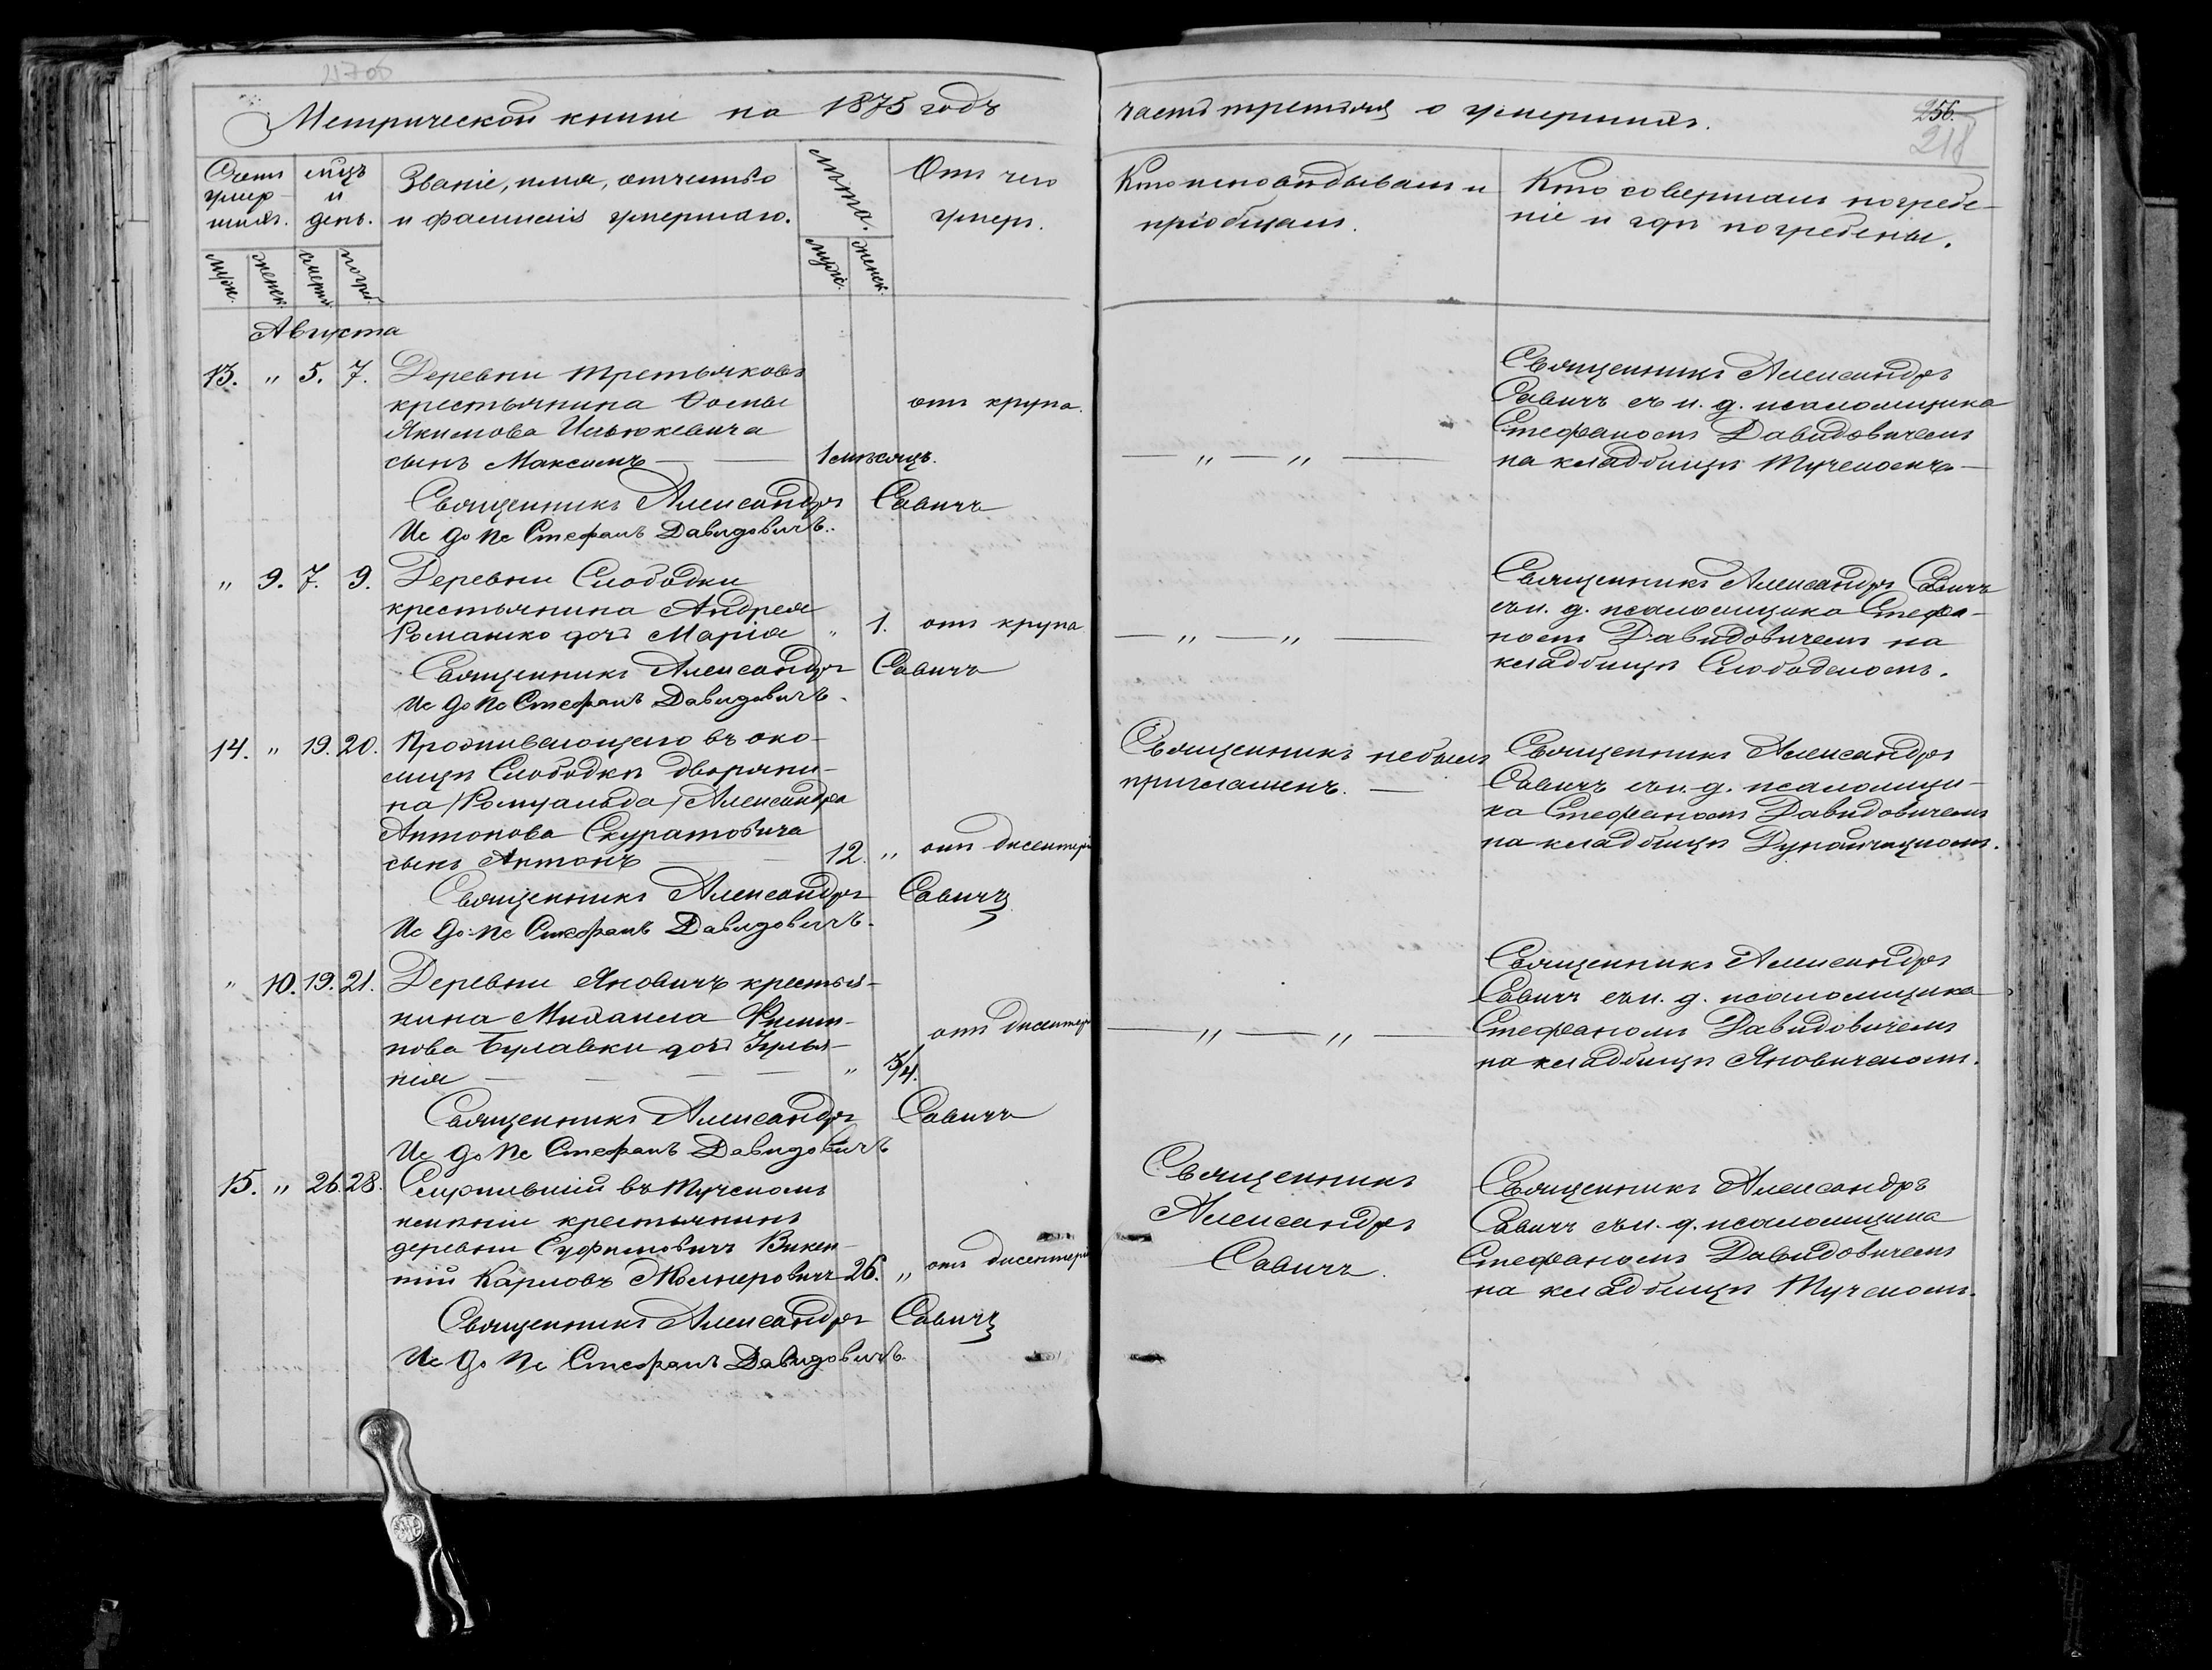 Метрической книги на 1875 годъ
Счетъ умер-шихъ.
мцъ и день.
Званіе, имя, отчество и фамилія умершаго.
лѣта.
Отъ чего умеръ.
муж.
женск.
смерти
погреб.
муж.
женск.
Августа
13. " 5. 7. Деревни Третьяковъ
крестьянина Ѳомы
отъ крупа.
Якимова Ильюкевича
сынъ Максимъ — — 1 мѣсяцъ.
Священникъ Александръ Савичъ
Ис до Пс Стефанъ Давидовичъ.
" 9. 7. 9. Деревни Слободки
крестьянина Андрея
Романко дочь Марія " 1. отъ крупа
Священникъ Александръ Савичъ
Ис до Пс Стефанъ Давидовичъ.
14. " 19. 20. Проживающаго въ око-
лицѣ Слободкѣ дворяни-
на /Ромуальда/ Александра
Антонова Скуратовича
сынъ Антонъ — — 12. " отъ дисентері
Священникъ Александръ Савичъ
Ис до Пс Стефанъ Давидовичъ.
" 10. 19. 21. Деревни Яновичъ крестья-
нина Михаила Филип-
отъ дисентер
пова Булавки дочь Іулья-
нія — — — — " 3/4.
Священникъ Александръ Савичъ
Ис до Пс Стефанъ Давидовичъ
15. " 26. 28. Служившій въ Тучскомъ
имѣніи крестьянинъ
деревни Викен-
тій Карловъ Жолнеровичъ 26. " отъ дисентері
Священникъ Александръ Савичъ
Ис до Пс Стефанъ Давидовичъ.
часть третія о умершихъ.
256.
218
Кто исповѣдывалъ и
пріобщалъ.
Кто совершалъ погребе-
ніе и гдѣ погребены.
Священникъ Александръ
Савичъ съ и. д. псаломщика
Стефаномъ Давидовичемъ
— " — " — на кладбищѣ
Священникъ Александръ Савичъ
съ и. д. псаломщика Стефа-
— " — " — номъ Давидовичемъ на
кладбищѣ Слободскомъ.
Священникъ не былъ
приглашенъ. —
Священникъ Александръ
Савичъ съ и. д. псаломщи-
ка Стефаномъ Давидовичемъ
на кладбищѣ
Священникъ Александръ
Савичъ съ и. д. псаломщика
— " — " — Стефаномъ Давидовичемъ
на кладбищѣ Яновичскомъ.
Священникъ
Александръ
Савичъ.
Священникъ Александръ
Савичъ съ и. д. псаломщика
Стефаномъ Давидовичемъ
на кладбищѣ Тучскомъ.